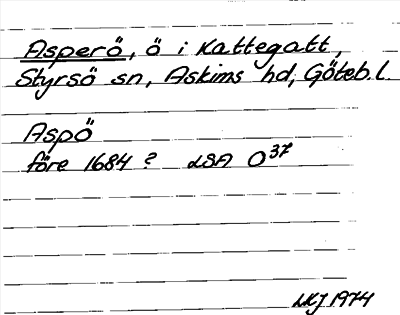 Asperö, ö i Kattegatt,
Styrsö sn, Askims hd, Göteb.l.
Aspö
före 1684 ? LSA O³⁷
LKJ 1974